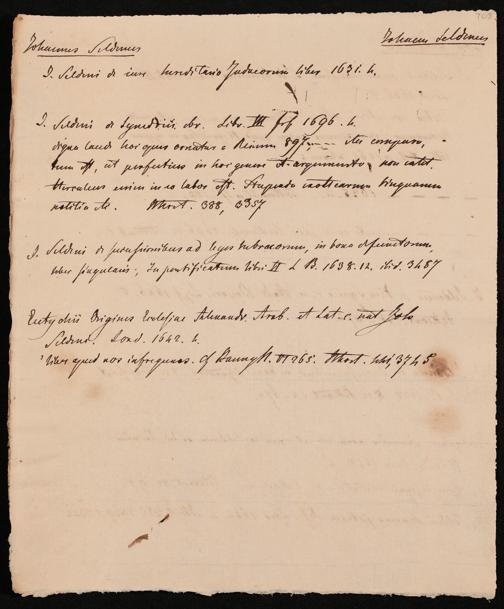 Johannes Seldenus
Johannes Seldenus
J. Seldeni de iure hereditario Judaeorum liber 1631. 4.
J. Seldeni de Synedriis ebr. Libr. III 1696. 4.
digna laude hoc opus ornatur a
tum est, ut perfectius in hoc genere et argumento non extet.
Herculeus enim in eo labor est. Stupenda exoticarum linguarum
notitia &c. 388, 3357
J. Seldeni de successionibus ad leges hebraeorum, in bona defunctorum,
liber singularis; In pontificatum libri II L B. 1638. 12. ibid. 3487
Eutychii Origines Ecclesiae Alexandr. Arab. et Lat. c. not Joh
Seldeni. Lond. 1642. 4.
liber apud nos infrequens. cf VI 265. 3745